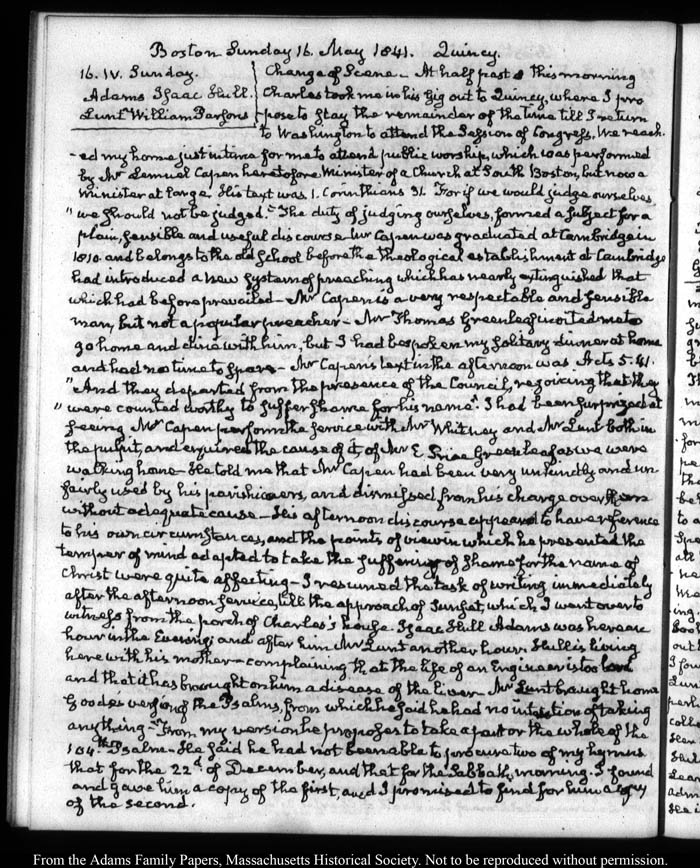 Boston Sunday 16. May 1841. Quincy.
16. IV. Sunday.
Adams Isaac Hull.
Lunt William Parsons
Change of Scene – At half past 8 this morning
Charles took me in his Gig out to Quincy, where I pro
pose to stay the remainder of the time till I return
to Washington to attend the Session of Congress, We reach
-ed my home just in time for me to attend public worship, which was performed
by Mr Lemuel Capen heretofore Minister of a Church at South Boston, but now a
minister at large. His text was 1. Corinthians 31. For if we would judge ourselves,
"we should not be judged." The duty of judging ourselves, formed a subject for a
plain, sensible and useful discourse Mr Capen was graduated at Cambridge in
1810 and belongs to the old School before the theological establishment at Cambridge
had introduced a new System of preaching which has nearly extinguished that
which had before prevailed – Mr Capen is a very respectable and sensible
man, but not a popular preacher – Mr Thomas Greenleaf invited me to
go home and dine with him, but I had bespoken my solitary dinner at home
and had no time to spare – Mr Capen's text in the afternoon was Acts 5.41.
"And they departed from the presence of the Council, rejoicing that they
"were counted worthy to suffer shame for his name". I had been surprized at
seeing Mr Capen perform the service with Mr Whitney and Mr Lunt both in
the pulpit, and enquired the cause of it, of Mr E Price Greenleaf as we were
walking home – He told me that Mr Capen had been very unkindly and un
fairly used by his parishioners, and dismissed from his charge over them
without adequate cause – His afternoon discourse appeared to have reference
to his own circumstances, and the points of view in which he presented the
temper of mind adapted to take the suffering of shame for the name of
Christ were quite affecting – I resumed the task of writing immediately
after the afternoon service, till the approach of Sunset, which I went over to
witness from the porch of Charles's house. Isaac Hull Adams was here an
hour in the Evening; and after him Mr Lunt another hour. Hull is living
here with his mother – complaining that the life of an Engineer is too hard
and that it has brought on him a disease of the liver – Mr Lunt brought home
Goode's version of the Psalms, from which he said he had no intention of taking
anything – From my version he proposes to take a part or the whole of the
104.th Psalm – He said he had not been able to procure two of my hymns
that for the 22d of December, and that for the Sabbath morning. I found
and gave him a copy of the first, and I promised to find for him a copy
of the second.
From the Adams Family Papers, Massachusetts Historical Society. Not to be reproduced without permission.